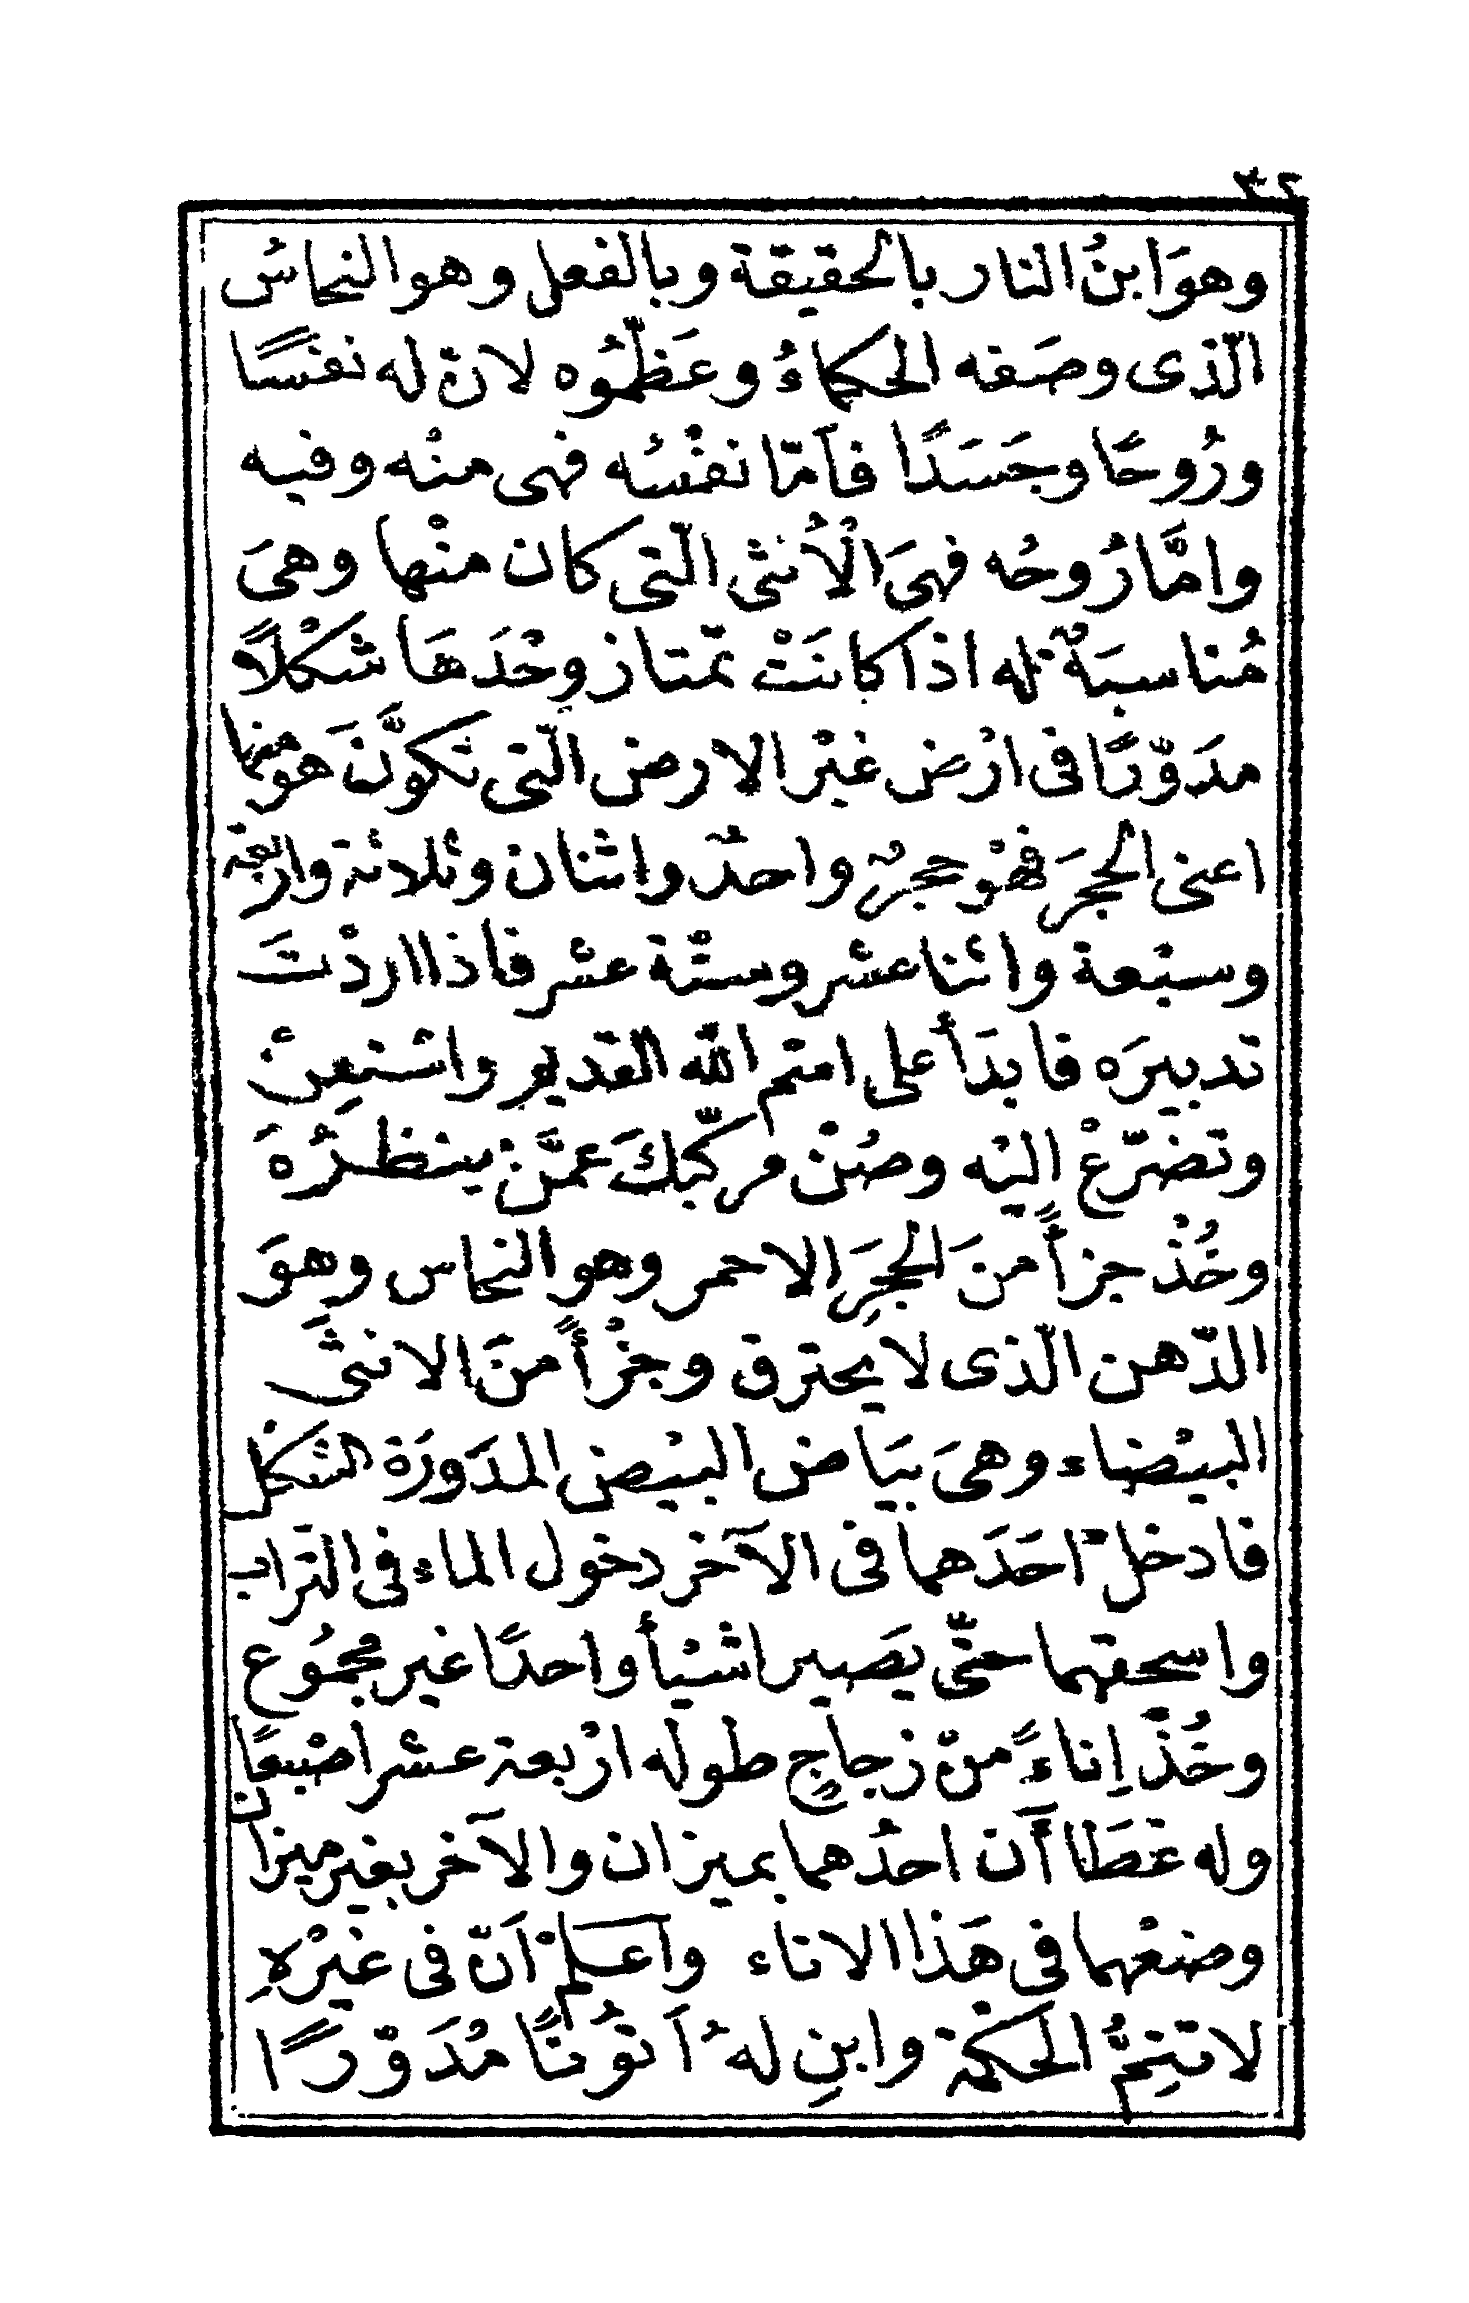 ٣٢
وهوَ ابنُ النار بالحقيقة وبالفعل وهو النحاسُ
الّذى وصَفه الحكماءُ وعَظّمُوه لانّ له نفسًا
ورُوحًا وجَسَدًا فاَمّا نفْسُه فهى منْه وفيه
وامَّا رُوحُه فهىَ الْأُنثى الّتى كان منْها وهىَ
مُناسبَةٌ له اذا كانَتْ تمّتاز وحْدَهَا شكْلاً
مدَوّرًا فى ارْض غيْر الارض الّتى تكوَّنَ هو منها
اعنى الحجرَ فهْو حجرٌ واحدٌ واثنان وثلاثة واربعة
وسبْعة واثنا عشر وستّة عشر فاذا اردْتَ
تدبيرَه فابدَأ على امتم اللّه القديم واستعِنْ
وتضرّعْ اليْه وصُنْ مركّبكَ عمَّنْ ينظرُهَ
وخُذْ جزأً منَ الحجَرِ الاحمر وهو النحاس وهوَ
الدّهن الّذى لا يحترق وجزْأً منَ الانثَى
البيْضاء وهىَ بيَاض البيْض المدَورَة الشكل
فادخلْ احَدَهما فى الآخر دخول الماء فى التراب
واسحقهما حتّى يَصيرا شيْأ واحدًا غير مجمُوع
وخُذْ اِناءً منْ زجاجٍ طوله ارْبعة عشر اصْبعًا
وله غطَاأَن احدُهما بميزان والآخر بغير ميزان
وضعْهما فى هَذا الاناء واعلمْ اَنّ فى غيْرهِ
لا تتِمُّ الحكمة وابنِ لهُ اَتوُنًا مُدَوّرًا